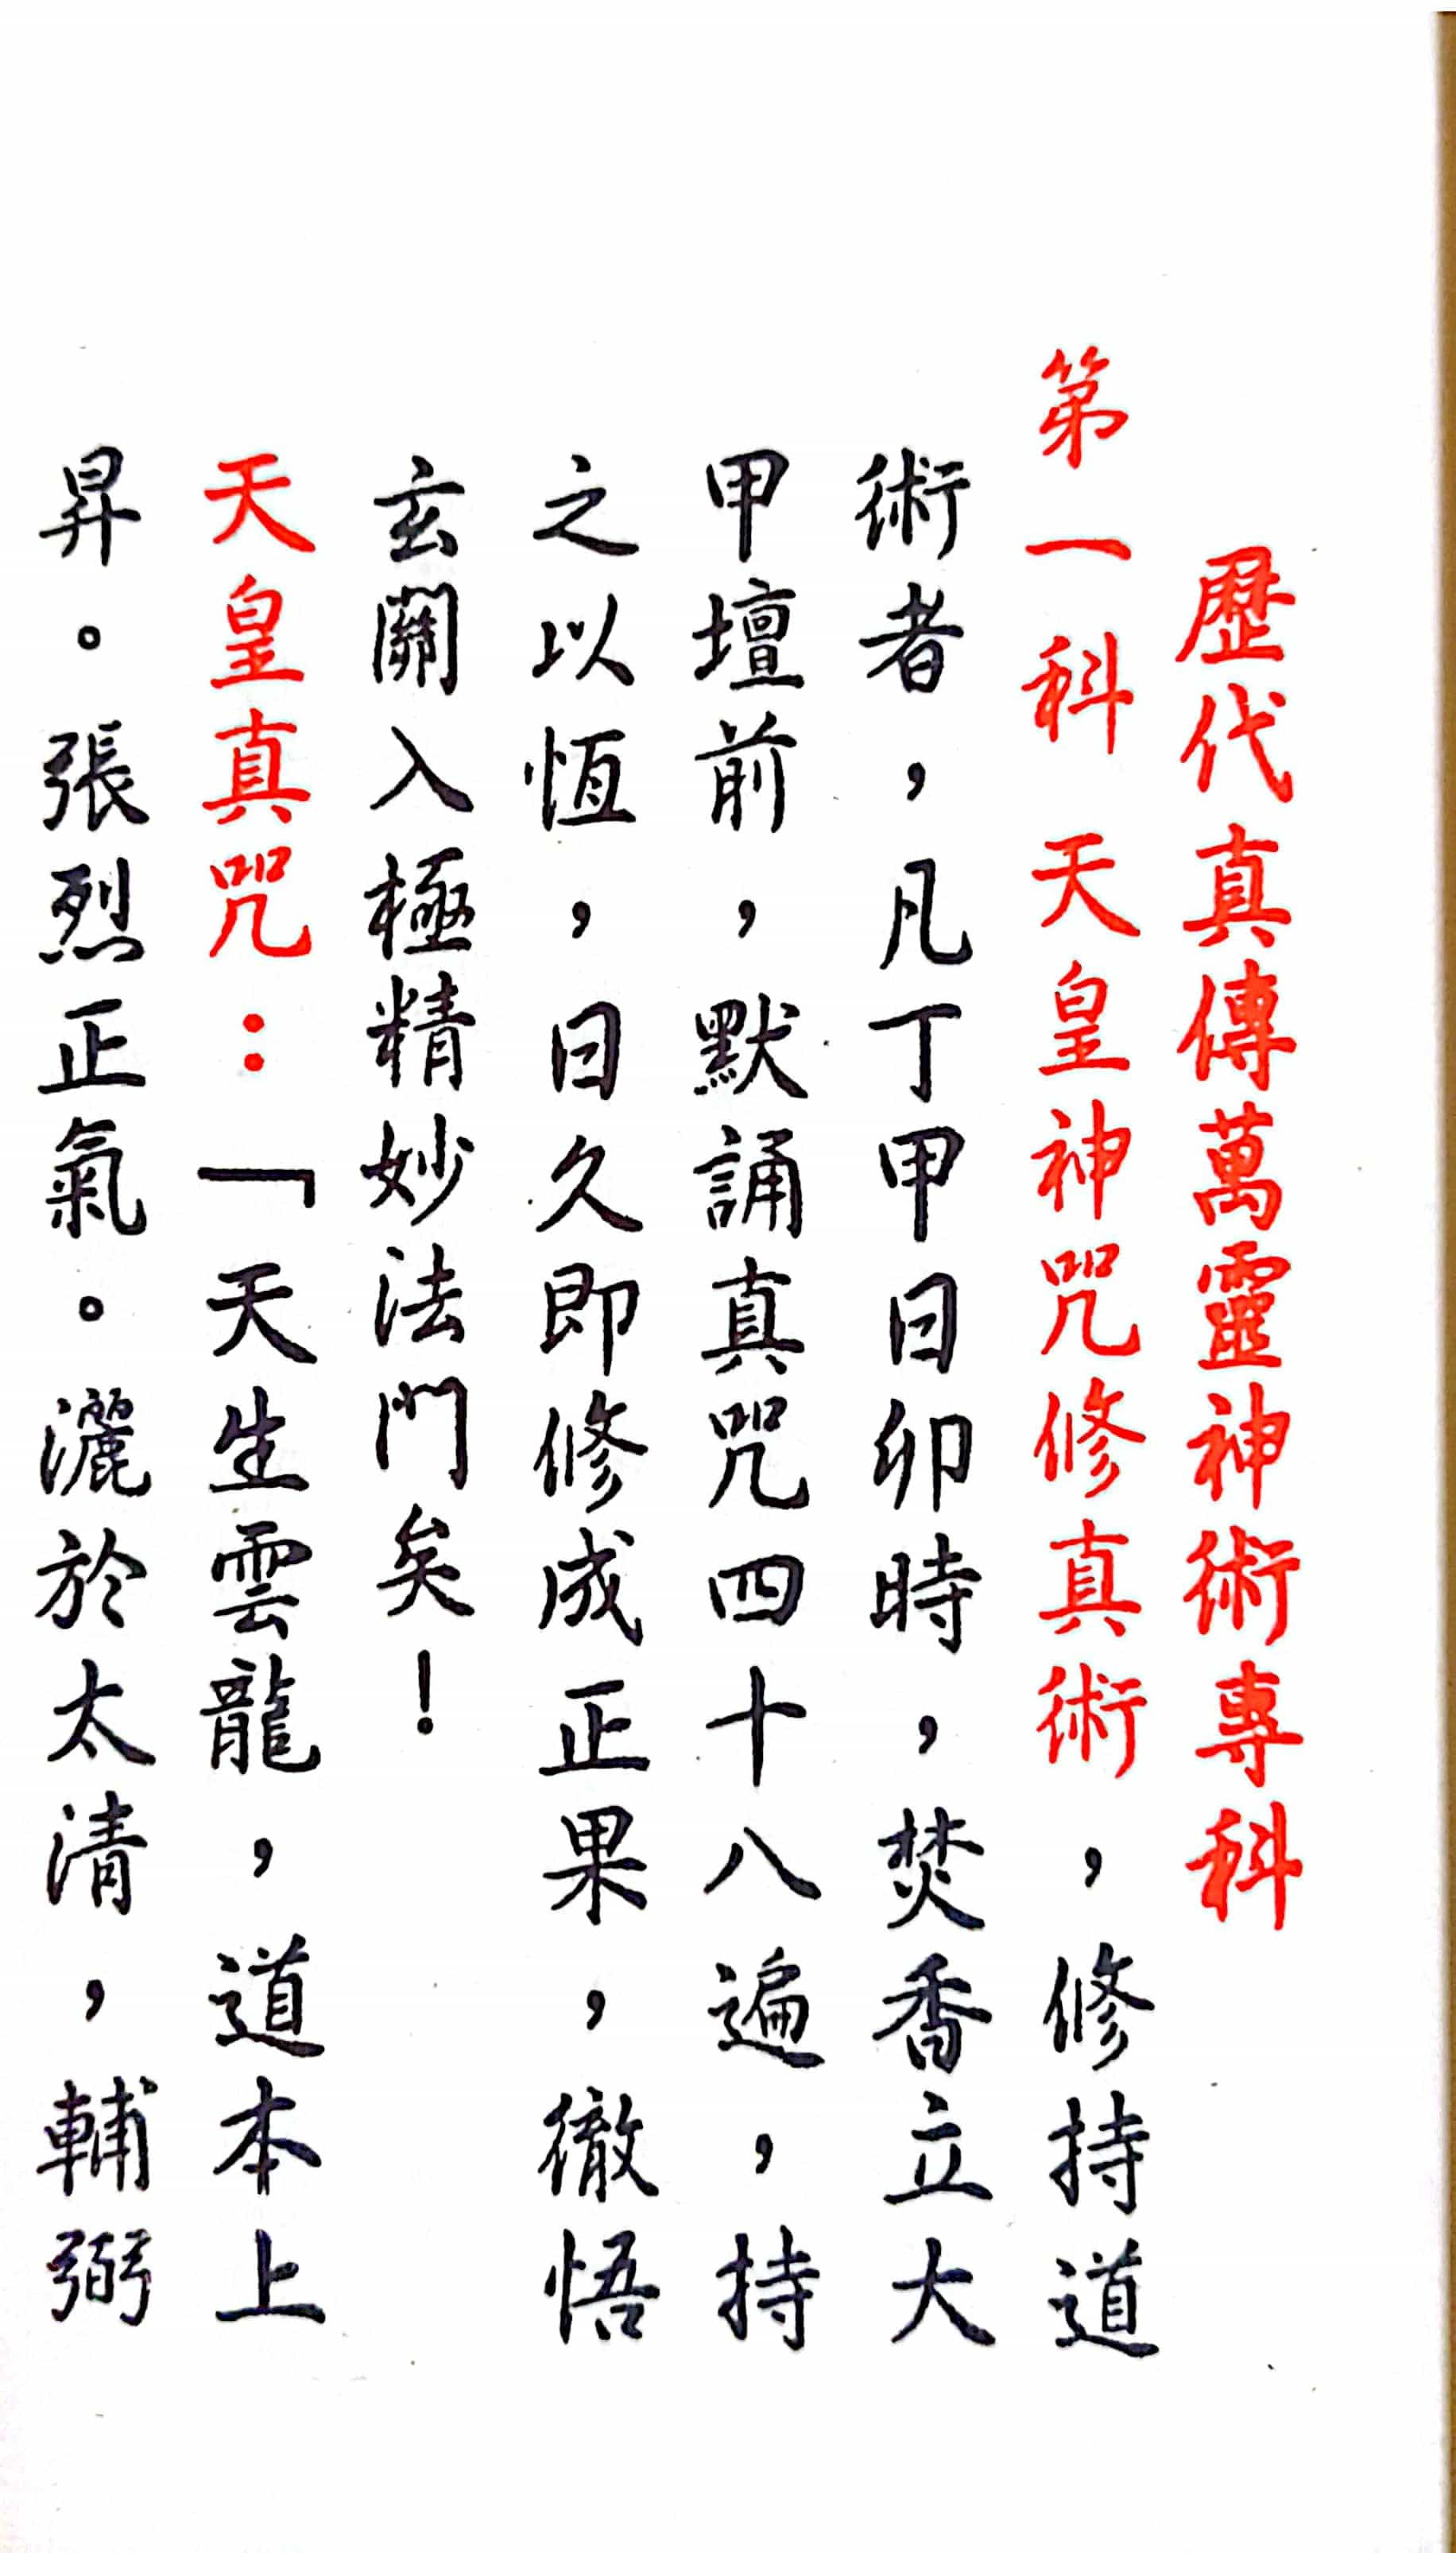 歷代真傳萬靈神術專科
第一科天皇神咒修真術，修持道
術者，凡丁甲日卯時，焚香立大
甲壇前，默誦真咒四十八遍，持
之以恆，日久即修成正果，徹悟
玄關入極精妙法門矣！
天皇真咒：「天生雲龍，道本上
昇。張烈正氣。灑於太清，輔弼